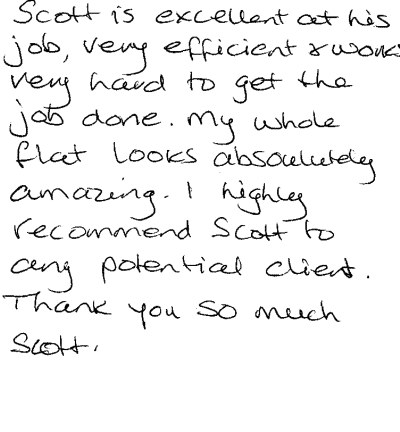 Scott is excellent at his
job, very efficient & works
very hard to get the
job done. My whole
flat looks absoulutely
amazing. I highly
recommend Scott to
any potential client.
Thank you so much
Scott.